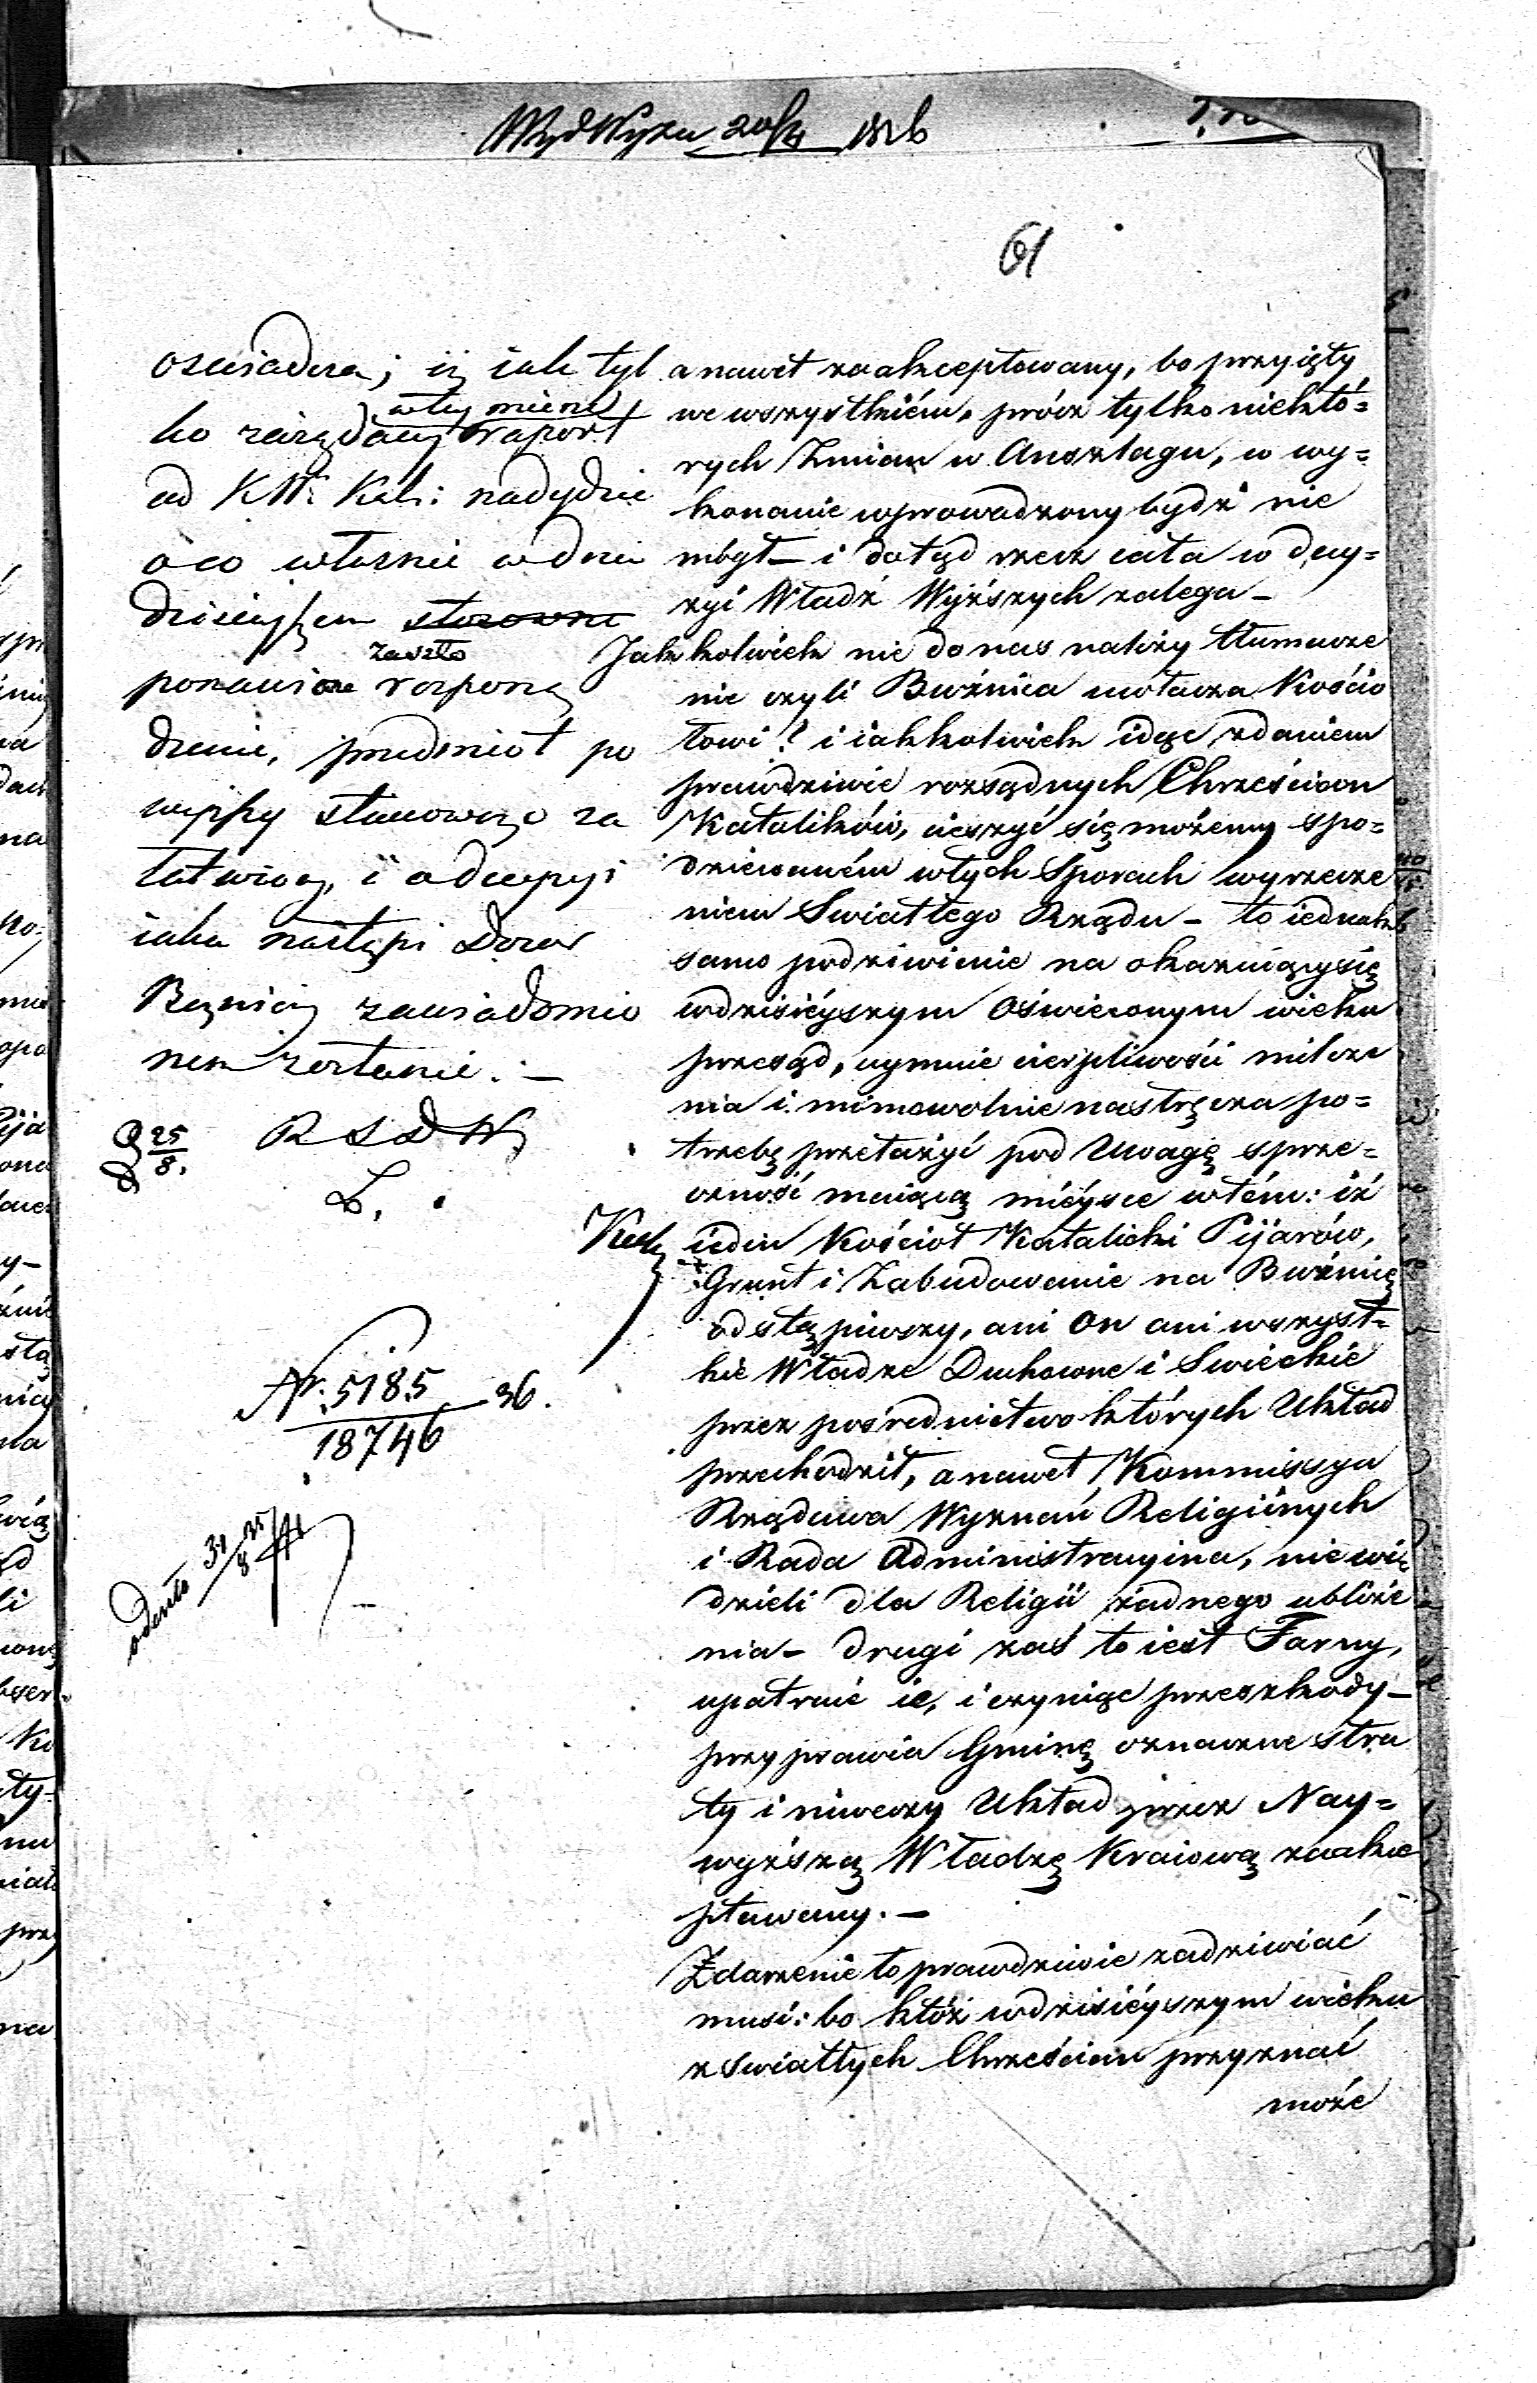 61
oswiadcza; iż iak tyl
w tey mierze
ko zażądany raport
od K W. Kal: nadeydzie
o co właśnie w dniu
dzisieyszem stosowne
zaszło
ponawione rosporzą
dzenie, przedmiot po
wyższy stanowczo za
łatwiony, i o decyzyi
iaka nastąpi Dozor
Bożniczy zawiadomio
nem zostanie. —
25/8.
R S D W
Z.
Nr. 5185/18746 36.
a nawet zaakceptowany, bo przyięty
we wszystkiém, prócz tylko niektó=
rych Zmian w Anszlagu, w wy=
konanie wprowadzony bydź nie
mógł — i dotąd rzecz cała w decy=
zyi Władz Wyższych zalega —
Jakkolwiek nie do nas należy tłumacze
nie czyli Bużnica uwłacza Kościo
łowi? i iakkolwiek idąc zdaniem
prawdziwie rozsądnych Chrześcian
Katolików, cieszyć się możemy spo=
dziewaném w tych Sporach wyrzecze
niem Swiatłego Rządu — to iednak
samo podziwienie na okazuiący się
w dzisieyszym Oświeconym wieku
przesąd, uymuie cierpliwości milcze
nia i mimowolnie nastręcza po=
trzebę przełożyć pod Uwagę sprze=
czność maiącą mieysce w tém: iż
ieden Kościoł Katolicki Pijarów,
Grunt i Zabudowanie na Bużnicę
odstąpiwszy, ani On ani wszyst=
kie Władze Duchowne i Swieckie
przez pośrednictwo których Układ
przechodził, a nawet Kommissya
Rządowa Wyznań Religiinych
i Rada Administracyina, nie wi=
dzieli dla Religii żadnego ubliże
nia — drugi zaś to iest Farny,
upatruie ie, i czyniąc przeszkody —
przyprawia Gminę o znaczne Stra
ty i niweczy Układ przez Nay=
wyższą Władzę Kraiową zaakce
ptowany. —
Zdarzenie to prawdziwie zadziwiać
musi: bo któż w dzisieyszym wieku
z swiatłych Chrześcian przyznać
może